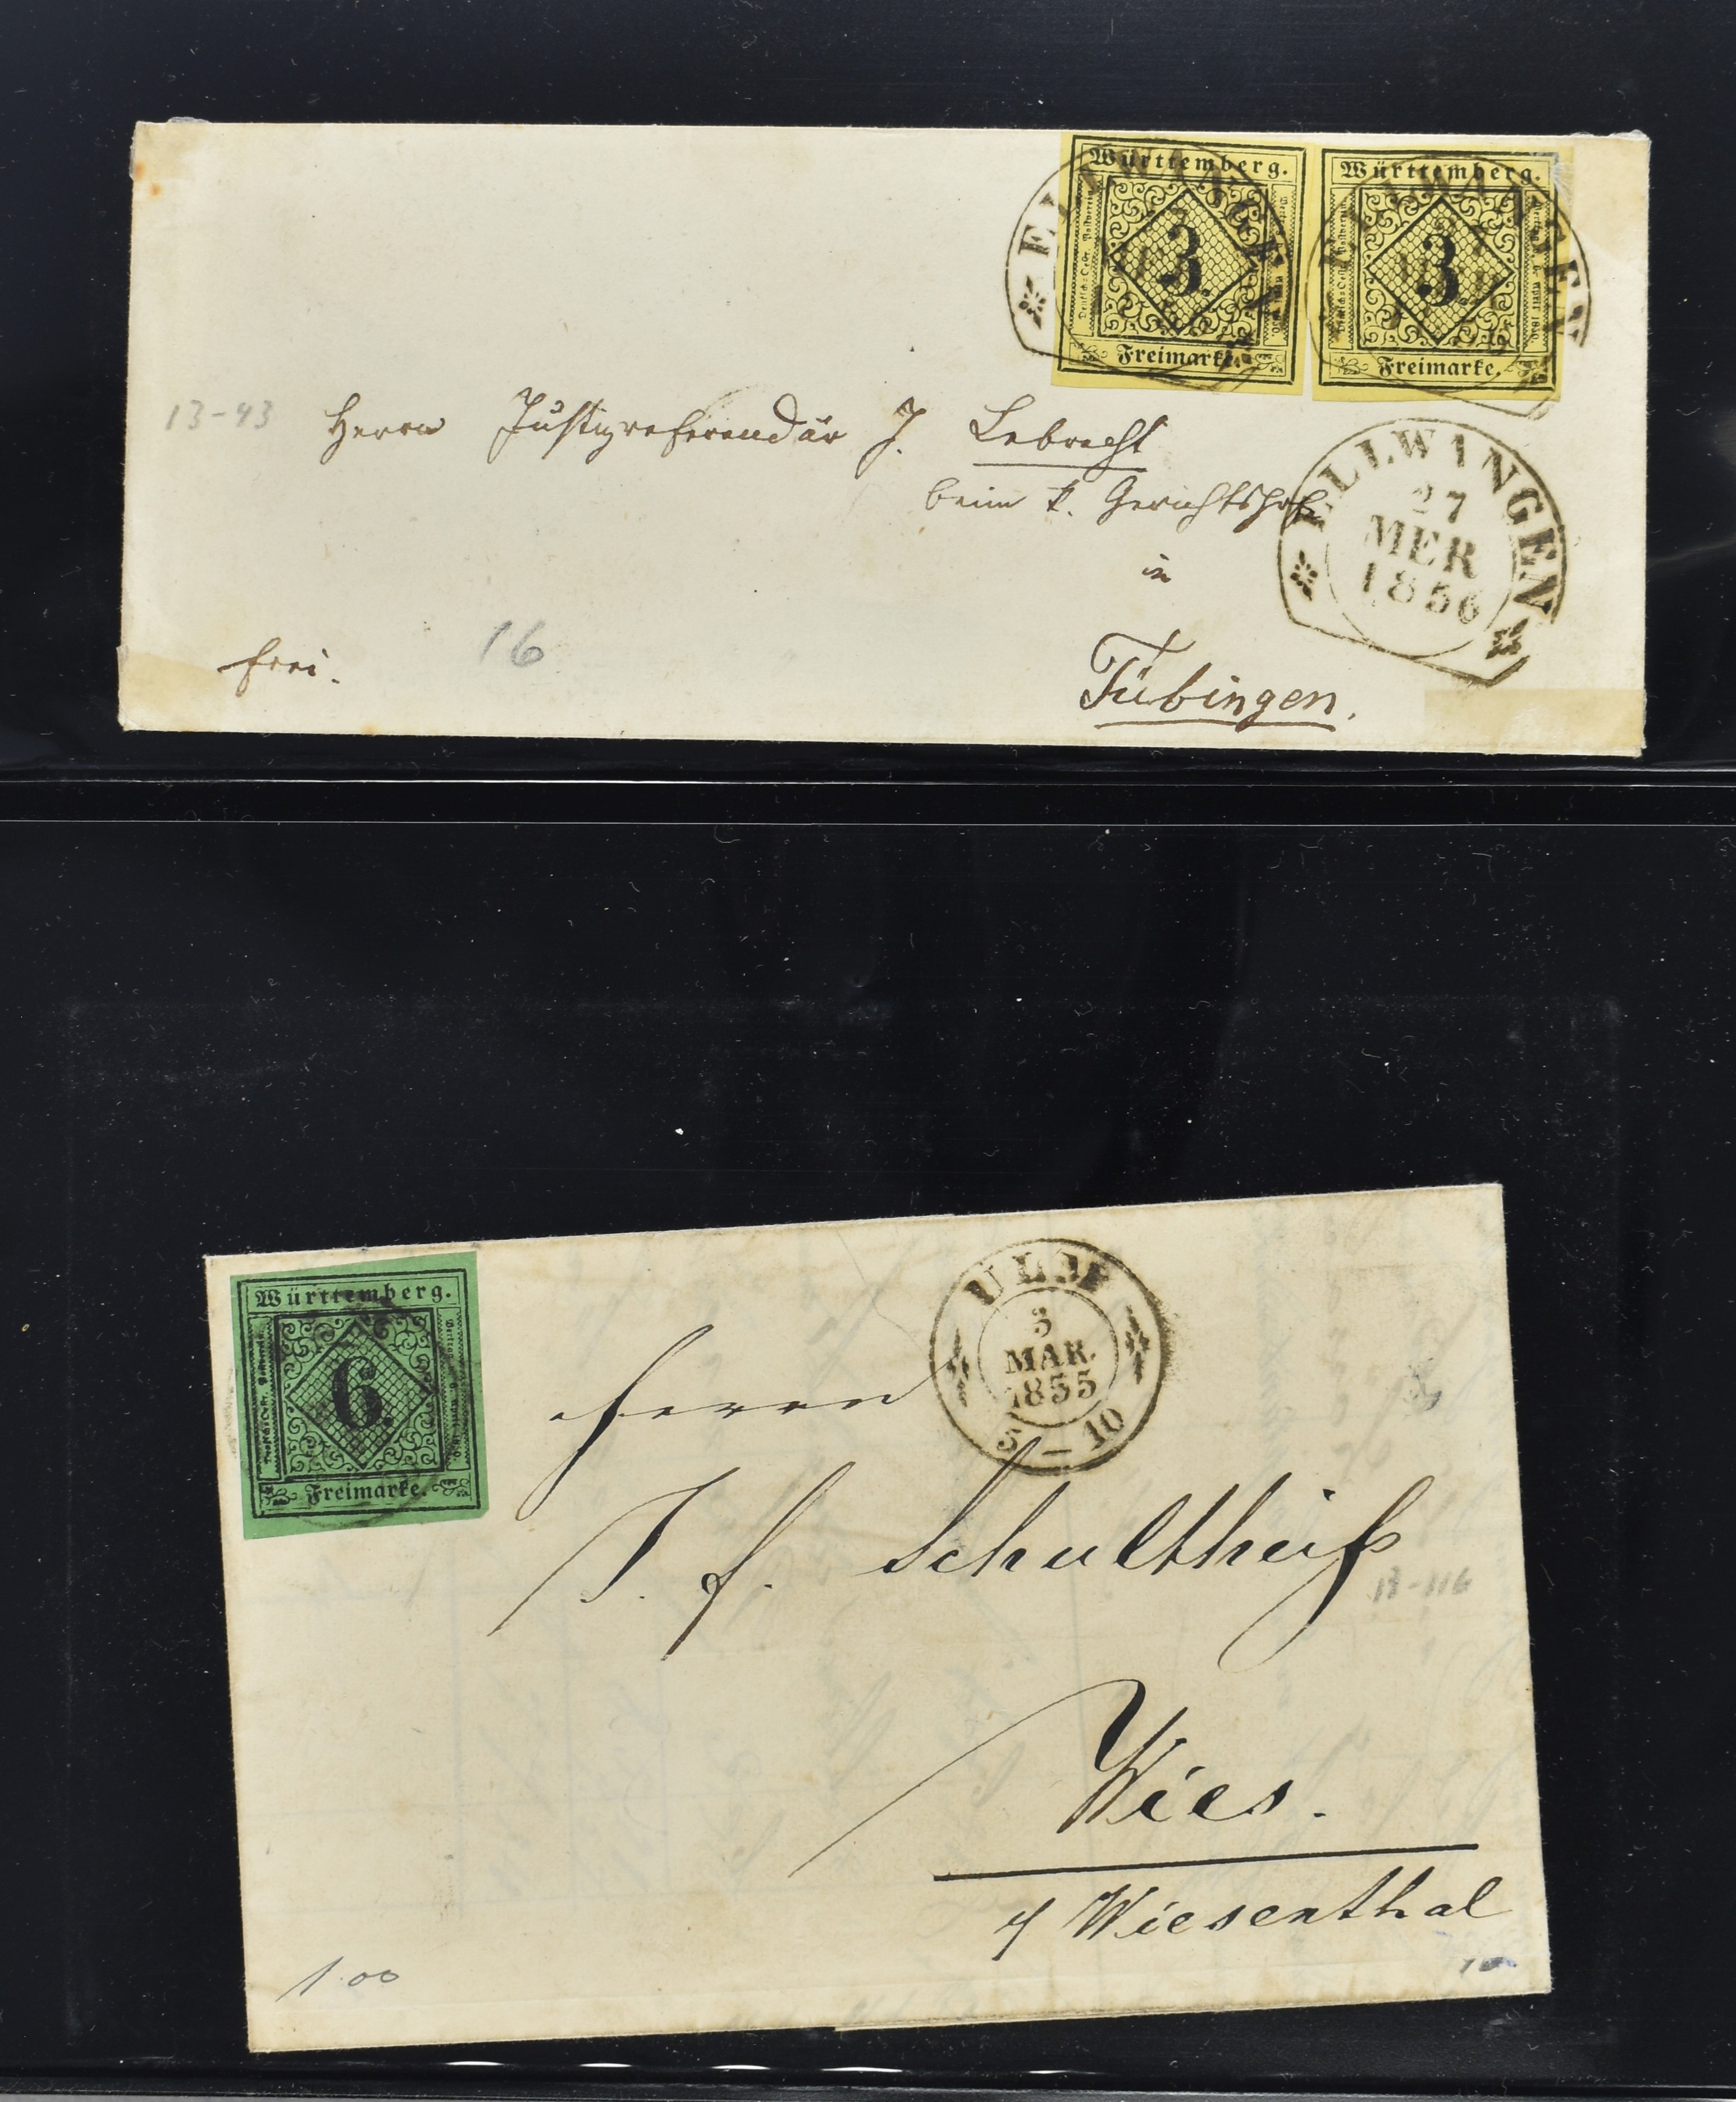 Württemberg.
3.
Freimarke.
Württemberg.
3.
Freimarke.
ELLWANGEN
ELLWANGEN
13-43
Herrn Justizreferendär J. Lebrecht
beim k. Gerichtshofe
in
Tübingen.
frei.
16
ELLWANGEN
27
MER
1856
Württemberg.
6.
Freimarke.
ULM
3
MAR.
1855
10
Herrn
J. F. Schultheiß
13-116
Wies.
Wiesenthal
1.00